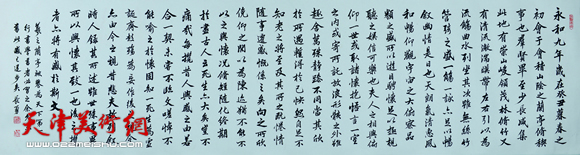 永和九年歲在癸丑暮春之
初會于會稽山陰之蘭亭脩稧
事也群賢畢至少長咸集
此地有崇山峻領茂林脩竹又
有清流激湍暎帶左右引以為
流觴曲水列坐其次雖無絲竹
管弦之盛一觴一詠亦足以暢
敘幽情是日也天朗氣清惠風
和暢仰觀宇宙之大俯察品
類之盛所以遊目騁懷足以極視
聽之娛信可樂也夫人之相與俯
仰一世或取諸懷抱悟言一室
之內或寄所託放浪形骸之外雖
趣舍萬殊靜躁不同當其欣
於所遇暫得於己怏然自足不
知老之將至及其所之既惓情
隨事遷感慨係之矣向之所欣
俛仰之間以為陳迹猶不能不
以之興懷況脩短隨化終期
於盡古人云死生亦大矣豈不
痛哉每攬昔人興感之由若
合一契未嘗不臨文嗟悼不
能喻之於懷固知一死生為虛
誕齊彭殤為妄作後之視今
亦由今之視昔悲夫故列敘
時人錄其所述雖世殊事異所
以興懷其致一也後之攬
者亦將有感於斯文
天津美术网